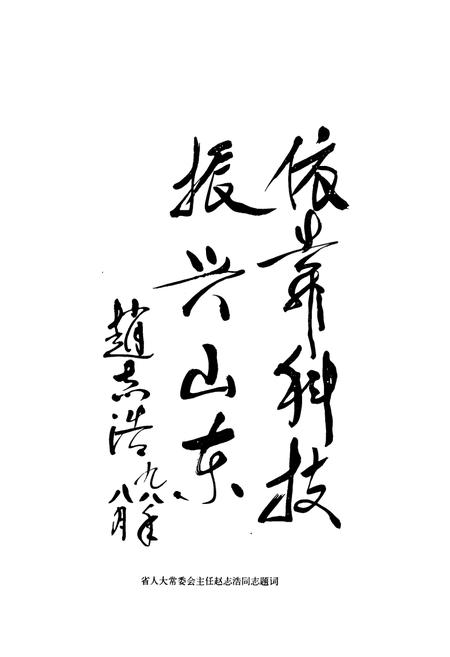 依靠科技
振兴山东
赵志浩
九八年
八月
省人大常委会主任赵志浩同志题词